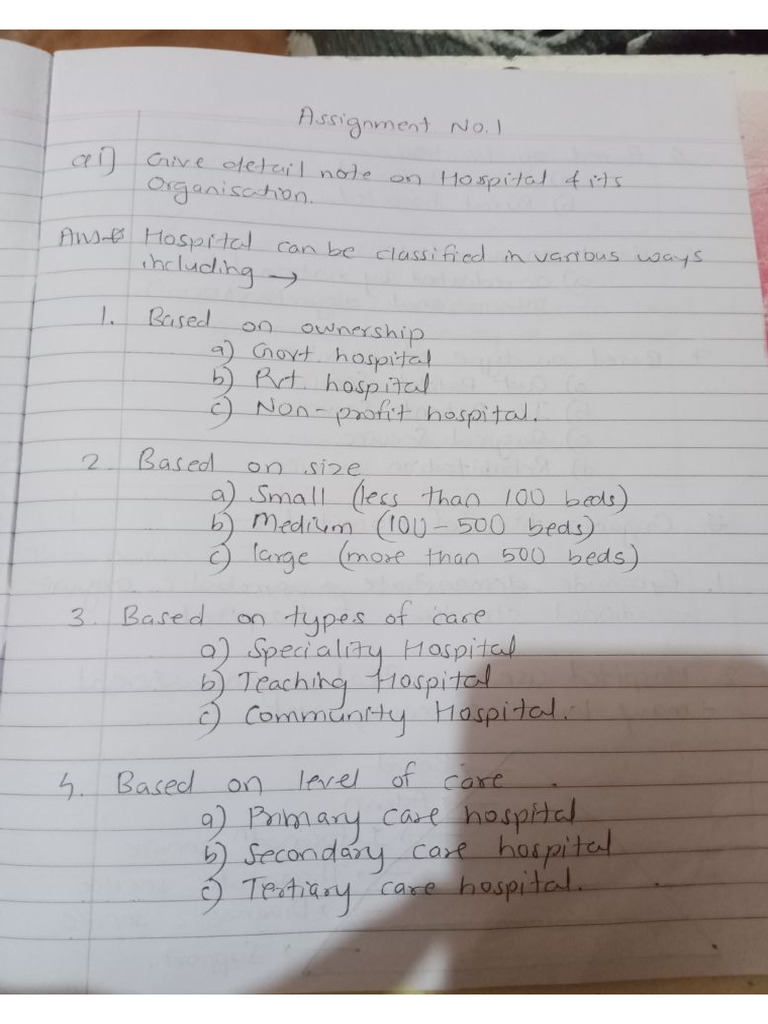 Assignment No.1
Q1) Give detail note on Hospital & its
Organisation.
Ans→ Hospital can be classified in various ways
including →
1. Based on ownership
a) Govt hospital
b) Pvt. hospital
c) Non-profit hospital.
2. Based on size
a) Small (less than 100 beds)
b) Medium (100-500 beds)
c) large (more than 500 beds)
3. Based on types of care
a) Speciality Hospital
b) Teaching Hospital
c) Community Hospital.
4. Based on level of care.
a) Primary care hospital
b) Secondary care hospital
c) Tertiary care hospital.